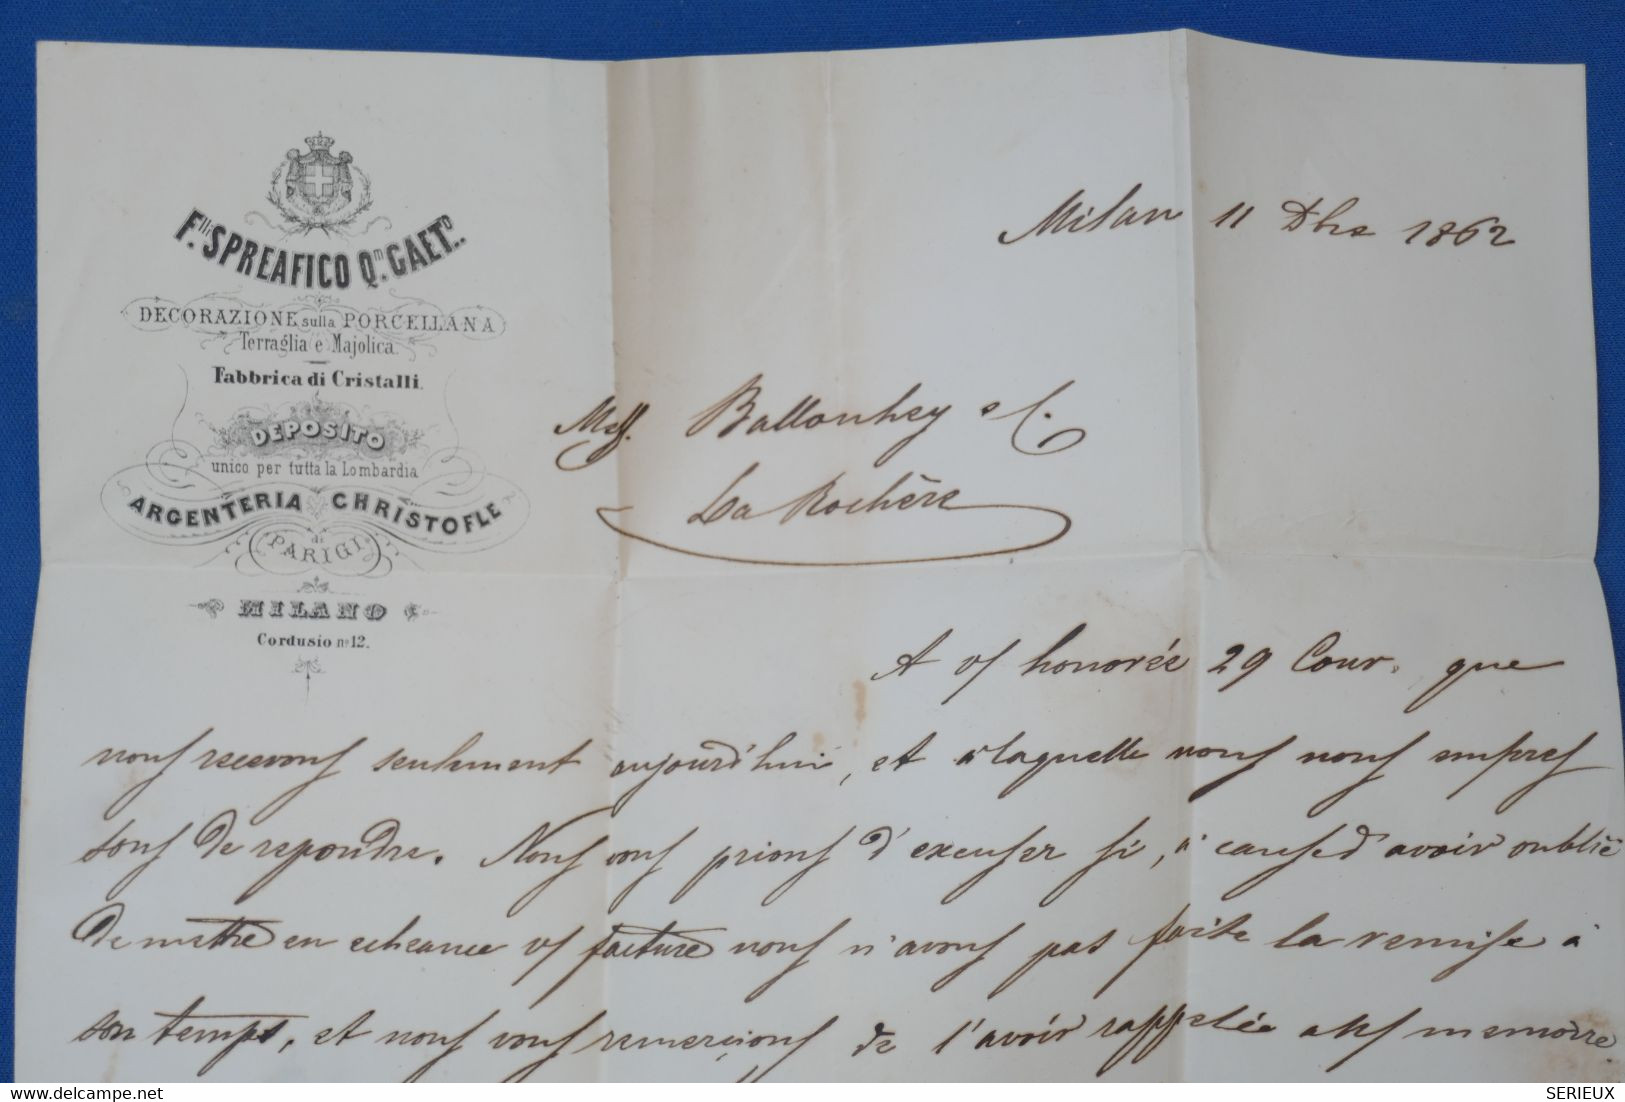 F.lli SPREAFICO Qm. GAETo.
DECORAZIONE sulla PORCELLANA
Terraglia e Majolica.
Fabbrica di Cristalli.
DEPOSITO
unico per tutta la Lombardia
ARGENTERIA CHRISTOFLE
di
PARIGI
MILANO
Cordusio no 12.
Milan 11 Dbre 1862
Mess. Ballouhey e C.
La Rochère
A v/ honorée 29 Cour. que
nous recevons seulement aujourd'hui, et à laquelle nous nous empres
sons de repondre. Nous vous prions d'excuser si, à cause d'avoir oublié
de mettre en echeance v/ facture nous n'avons pas faite la remise à
son temps, et nous vous remerçions de l'avoir rappelée memoire.
SERIEUX
delcampe.net